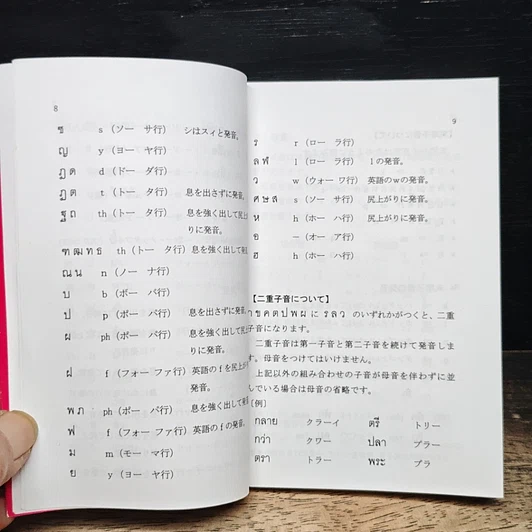 8
ซ s（ソー サ行） シはスィと発音。
ญ y（ヨー ヤ行）
ฎ ด d（ドー ダ行）
ฏ ต t（トー タ行） 息を出さずに発音。
ฐ ถ th（トー タ行） 息を強く出して尻上が
りに発音。
ฑ ฒ ท ธ th（トー タ行） 息を強く出して発音
ณ น n（ノー ナ行）
บ b（ボー バ行）
ป p（ポー パ行） 息を出さずに発音。
ผ ph（ポー パ行） 息を強く出して尻上が
りに発音。
ฝ f（フォー ファ行） 英語のfを尻上がりに
発音。
พ ภ ph（ポー パ行） 息を強く出して発音
ฟ f（フォー ファ行） 英語のfの発音。
ม m（モー マ行）
ย y（ヨー ヤ行）
9
ร r（ロー ラ行）
ล ฬ l（ロー ラ行） lの発音。
ว w（ウォー ワ行） 英語のwの発音。
ศ ษ ส s（ソー サ行） 尻上がりに発音。
ห h（ホー ハ行） 尻上がりに発音。
อ －（オー ア行）
ฮ h（ホー ハ行）
【二重子音について】
ก ข ค ต ป พ ผ に ร ล ว のいずれかがつくと、二重
子音になります。
二重子音は第一子音と第二子音を続けて発音しま
す。母音をつけてはいけません。
上記以外の組み合わせの子音が母音を伴わずに並
んでいる場合は母音の省略です。
〔例〕
กลาย クラーイ ตรี トリー
กว่า クワー ปลา プラー
ตรา トラー พระ プラ